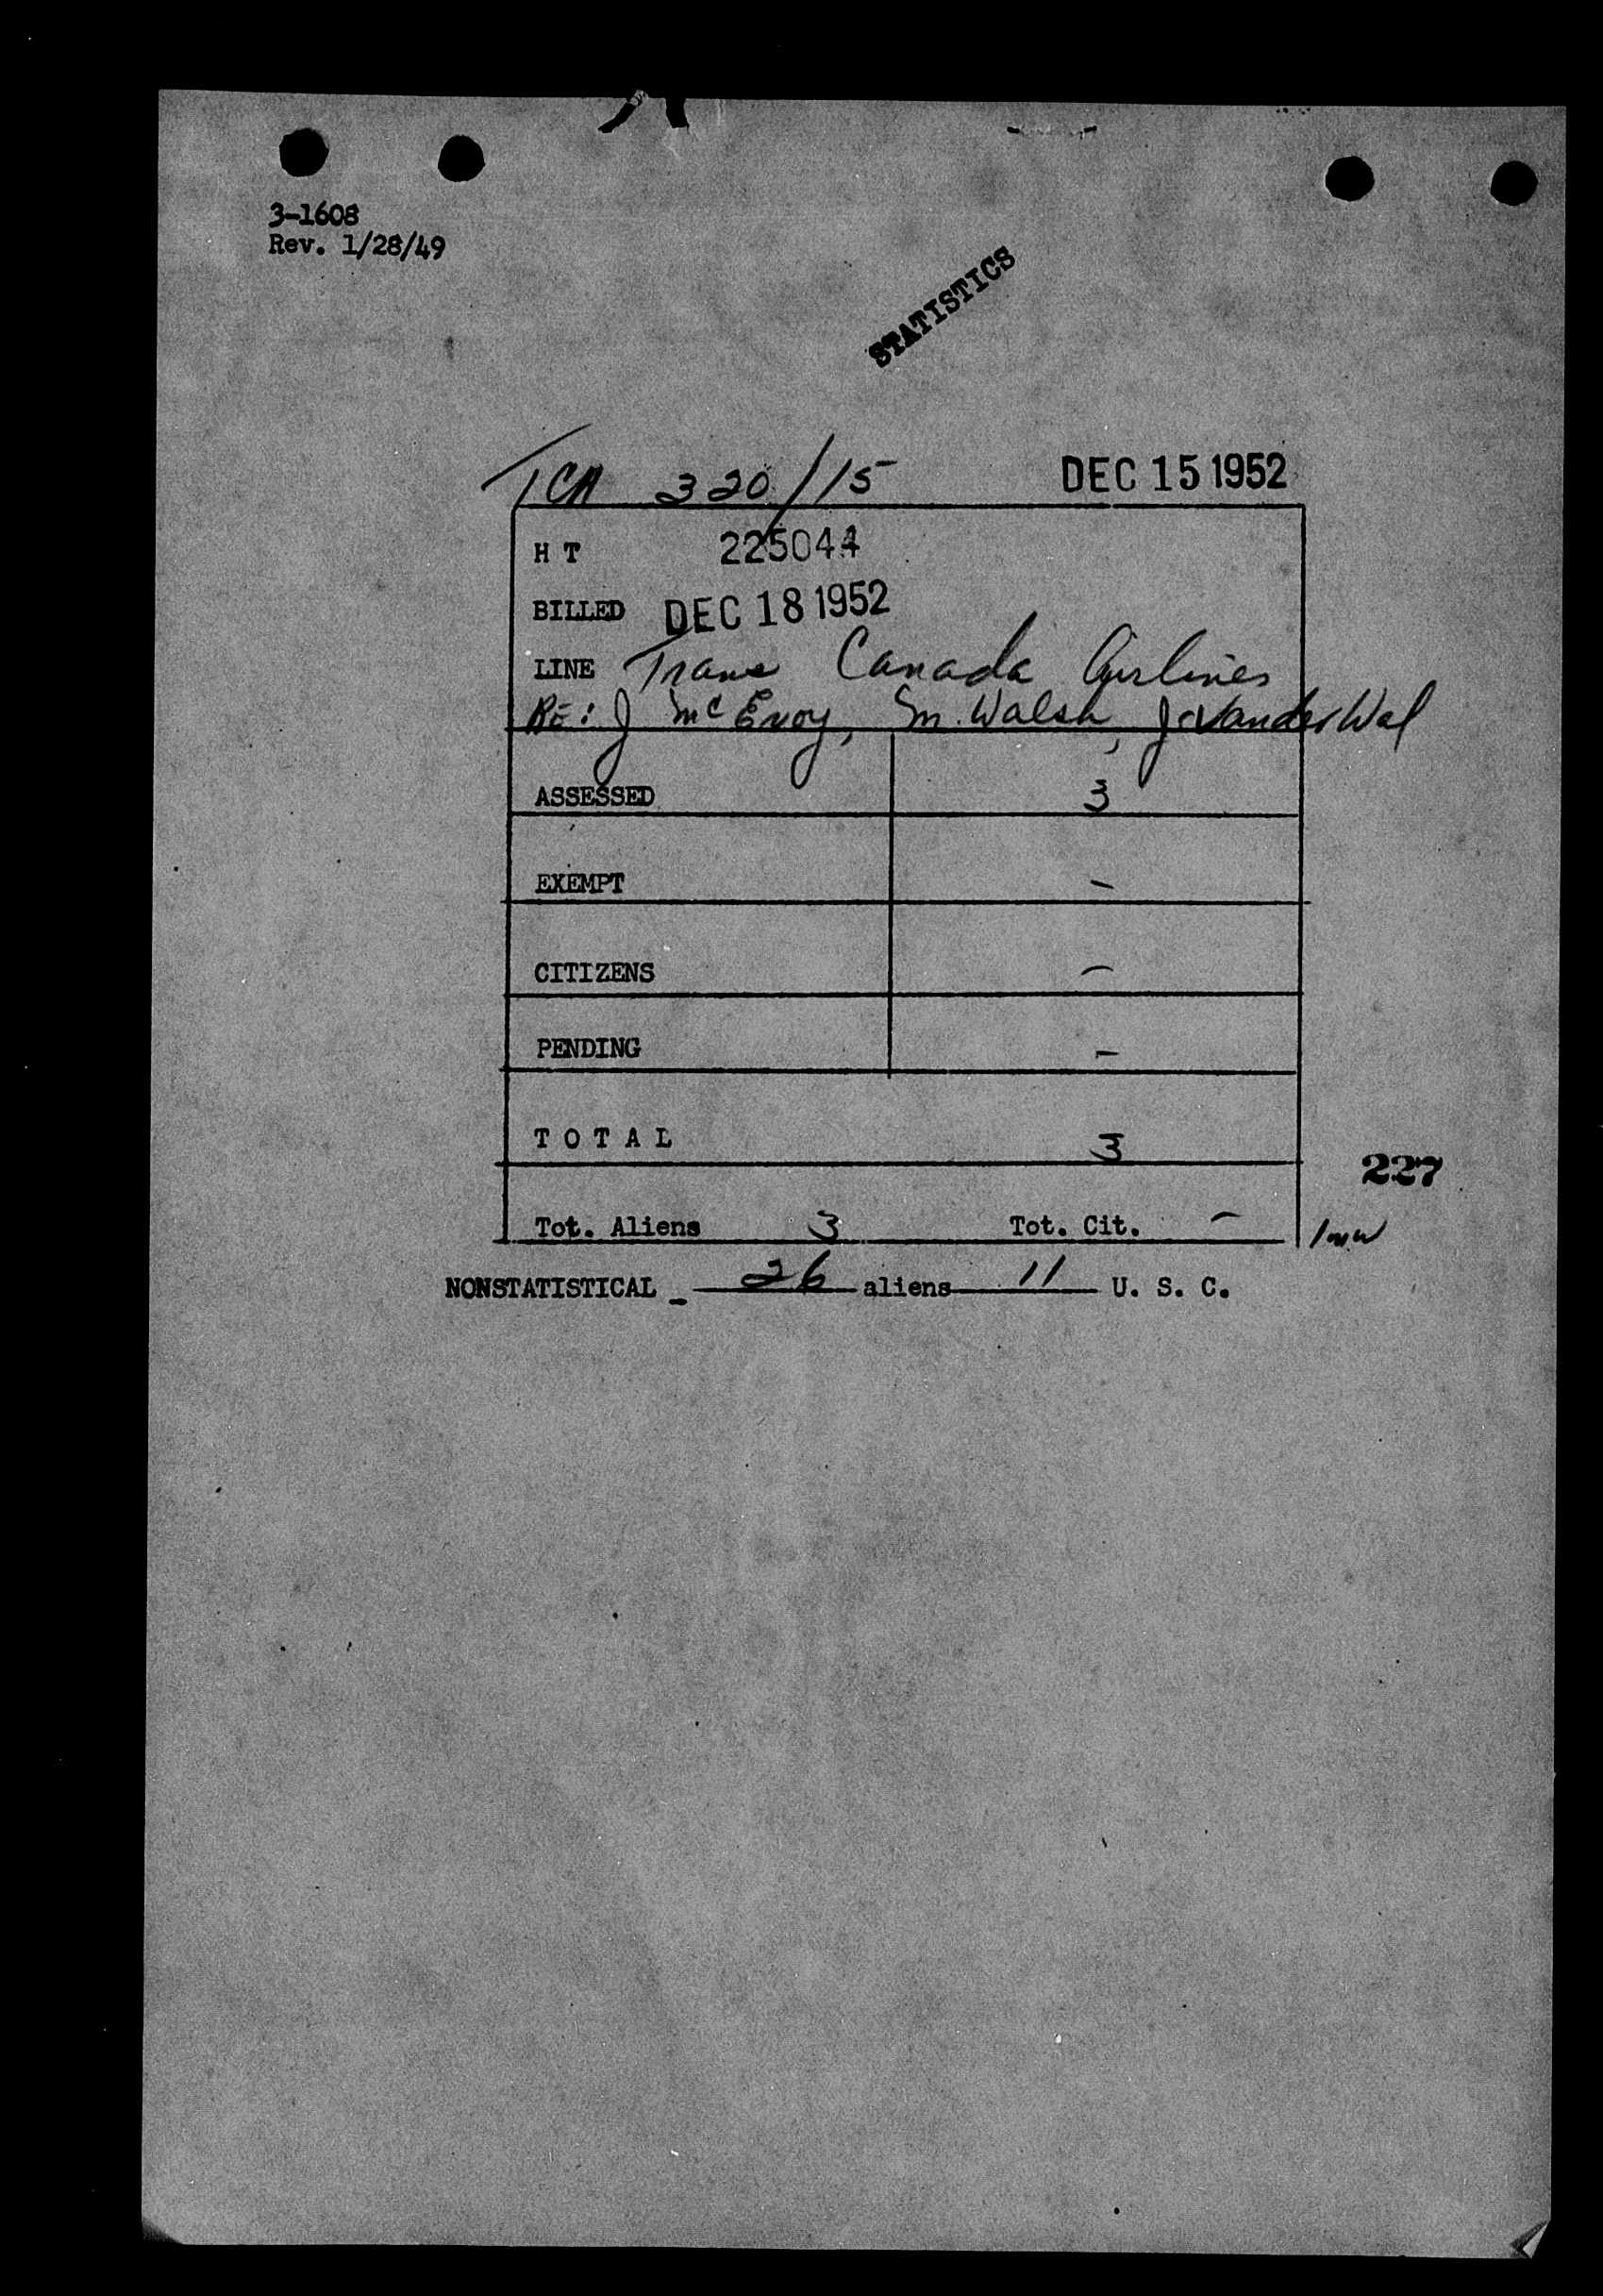 3-1608
Rev. 1/28/49
STATISTICS
TCA 320/15 DEC 15 1952
H T 225044
BILLED DEC 18 1952
LINE Trans Canada Airlines
Re: J McEvoy, M. Walsh, J. VanderWal
ASSESSED 3
EXEMPT –
CITIZENS –
PENDING –
T O T A L 3
227
Tot. Aliens 3 Tot. Cit. –
NONSTATISTICAL - 26 aliens 11 U. S. C.